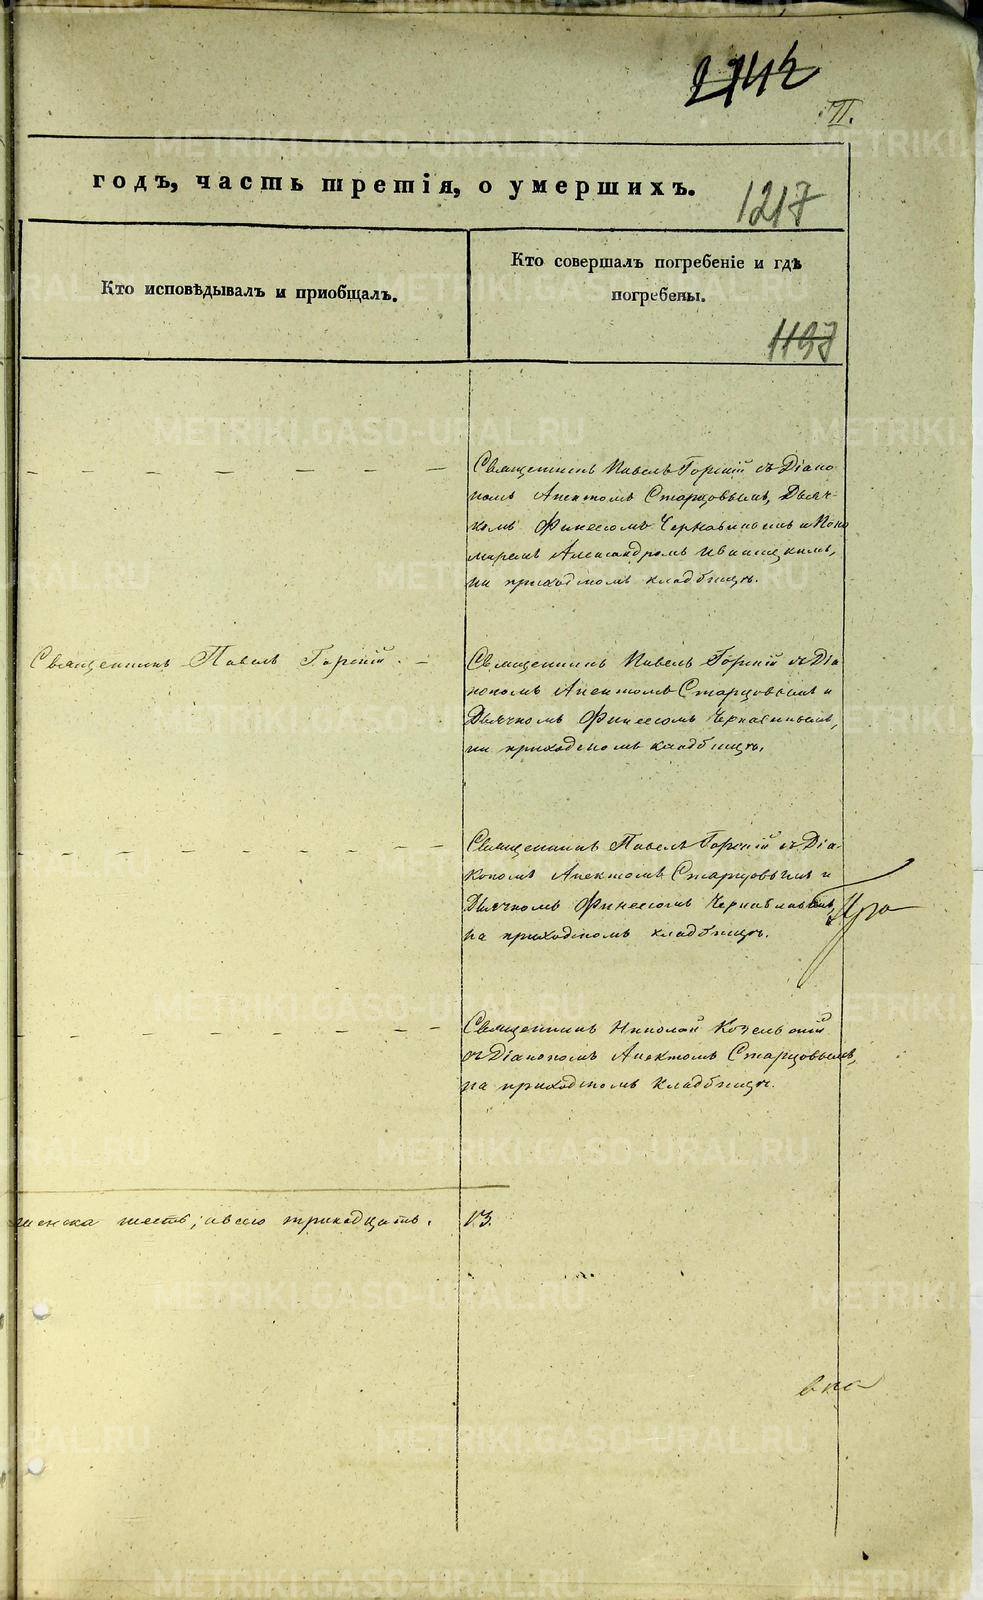 VI.
годъ, часть третія, о умершихъ.
1217
Кто исповѣдывалъ и приобщалъ.
Кто совершалъ погребеніе и гдѣ
погребены.
1197
Священникъ Павелъ Горскій съ Діако
номъ Аникитомъ Старцовымъ, Дьяч-
комъ Финеесомъ Чернавинымъ и Поно
маремъ Александромъ Ивановскимъ,
на приходскомъ кладбищѣ.
Священникъ Павелъ Горскій. –
Священникъ Павелъ Горскій съ Діа
кономъ Аникитомъ Старцовымъ и
Дьячкомъ Финеесомъ Чернавинымъ,
на приходскомъ кладбищѣ.
Священникъ Павелъ Горскій съ Діа-
кономъ Аникитомъ Старцовымъ и
Дьячкомъ Финеесомъ Чернавинымъ,
на приходскомъ кладбищѣ.
Священникъ Николай
съ Діакономъ Аникитомъ Старцовымъ,
на приходскомъ кладбищѣ.
женска шесть; а всего тринадцать.
13.
METRIKI.GASO-URAL.RU